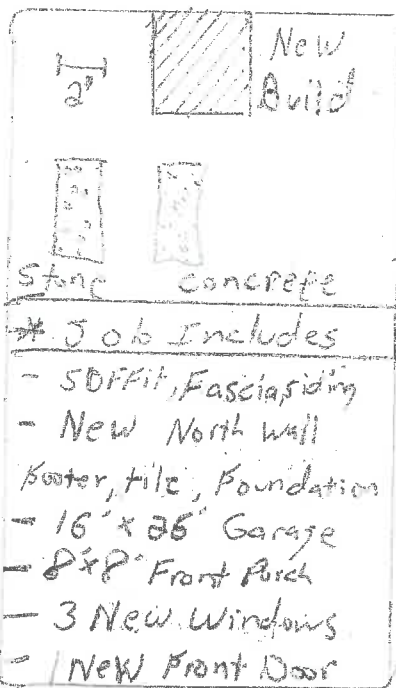 New
2'
Build
Stone Concrete
* Job Includes
- Soffit, Fascia, siding
- New North Wall
Footer, tile, Foundation
- 16' x 26' Garage
- 8'x8' Front Porch
- 3 New Windows
- New Front Door